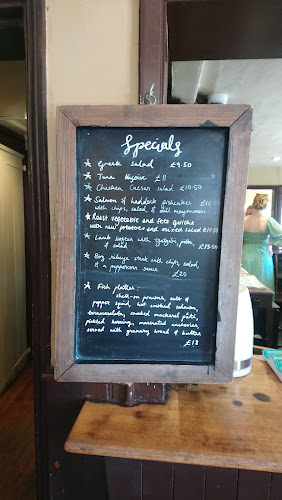 Specials
Greek Salad £9.50
Tuna Niçoise £11
Chicken Caesar salad £10.50
Salmon & haddock fishcakes £12.50
with chips, salad, & mayonnaise
Roast vegetable and feta quiche
with new potatoes and mixed salad £10.50
Lamb koftas with tzatziki, pitta, £13.50
& salad
8oz ribeye steak with chips, salad,
& a peppercorn sauce £20
Fish platter:
shell-on prawns, salt &
pepper squid, hot smoked salmon,
taramasalata, smoked mackerel pâté,
pickled herring, marinated anchovies,
served with granary bread & butter
£18